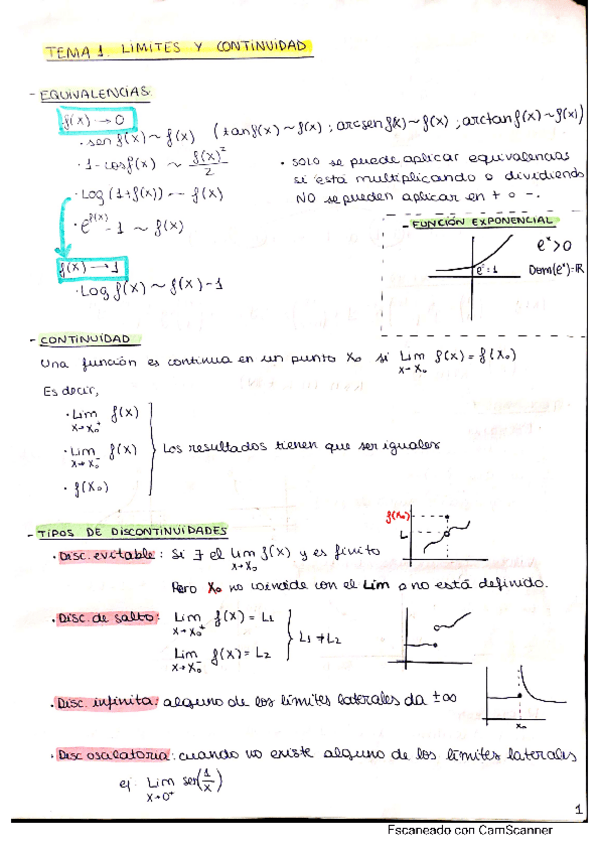 TEMA 1. LIMITES Y CONTINUIDAD
- EQUIVALENCIAS:
f(x) → 0
· sen f(x) ~ f(x) (tan f(x) ~ f(x) ; arcsen f(x) ~ f(x) ; arctan f(x) ~ f(x))
· 1 - cos f(x) ~ f(x)²/2
· solo se puede aplicar equivalencias
si está multiplicando o dividiendo
NO se pueden aplicar en + o -.
· Log (1+f(x)) -- f(x)
· e^f(x) - 1 ~ f(x)
f(x) → 1
· Log f(x) ~ f(x) - 1
- FUNCIÓN EXPONENCIAL
e^x > 0
e° = 1
Dom(e^x) = IR
- CONTINUIDAD
Una función es continua en un punto x₀ si Lim f(x) = f(x₀)
x→x₀
Es decir,
· Lim f(x)
x→x₀⁺
· Lim f(x)
x→x₀⁻
Los resultados tienen que ser iguales
· f(x₀)
- TIPOS DE DISCONTINUIDADES
f(x₀)
L
· Disc. evitable: Si ∃ el Lim f(x) y es finito
x→x₀
Pero x₀ no coincide con el Lim o no está definido.
· Disc. de salto: Lim f(x) = L₁
x→x₀⁺
L₁ ≠ L₂
Lim f(x) = L₂
x→x₀⁻
· Disc. infinita: alguno de los límites laterales da ±∞
x₀
· Disc oscilatoria: cuando no existe alguno de los límites laterales
ej: Lim sen(1/x)
x→0⁺
1
Escaneado con CamScanner